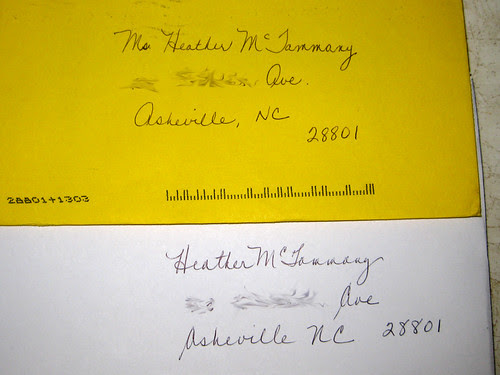 Ms. Heather McTammany
Ave.
Asheville, NC
28801
28801+1303
Heather McTammany
Ave
Asheville NC 28801